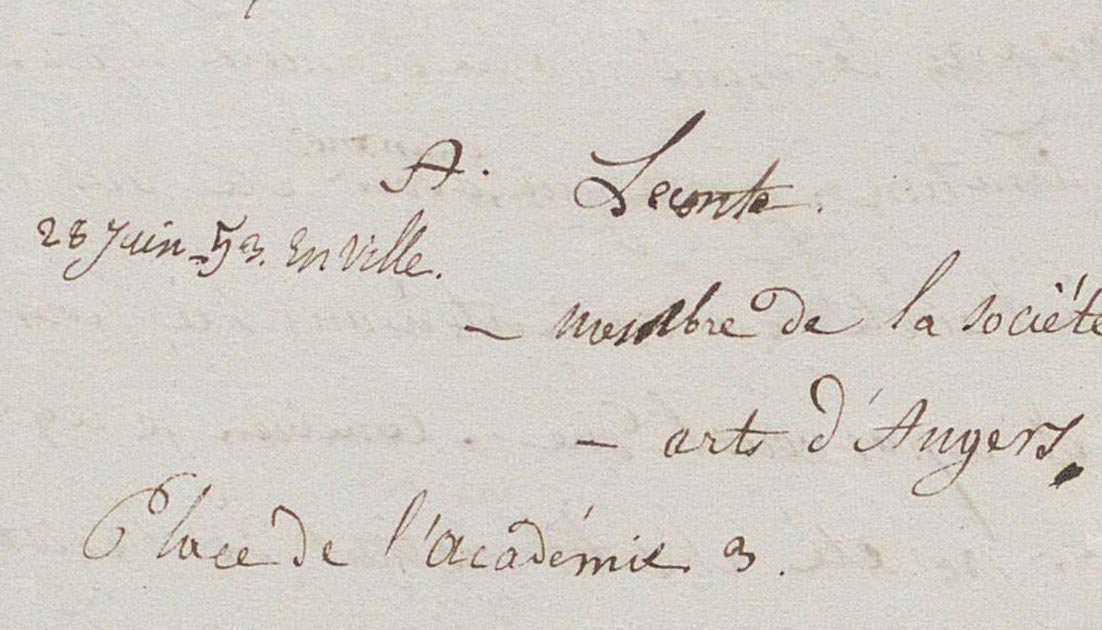 A. Leconte.
28 Juin - 53. En Ville.
— membre de la société
— arts d'Angers,
Place de l'Académie 3.